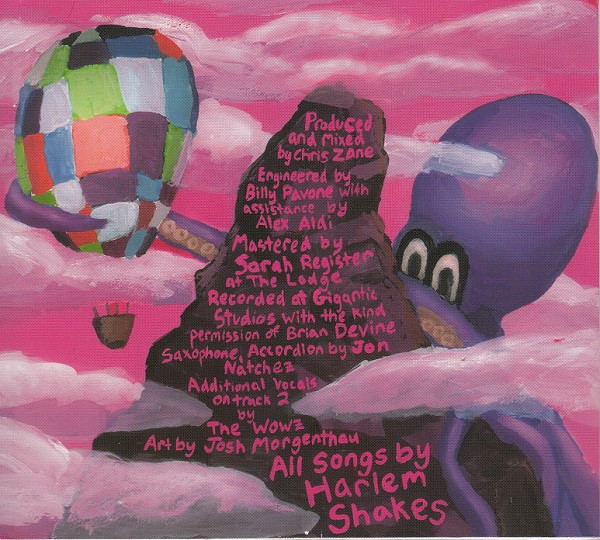 Produced
and mixed
by Chris Zane
Engineered by
Billy Pavone with
assistance by
Alex Aldi
Mastered by
Sarah Register
at The Lodge
Recorded at Gigantic
Studios with the kind
permission of Brian Devine
Saxophone, Accordion by Jon
Natchez
Additional Vocals
on track 2
by
The Wowz
Art by Josh Morgenthau
All Songs by
Harlem
Shakes